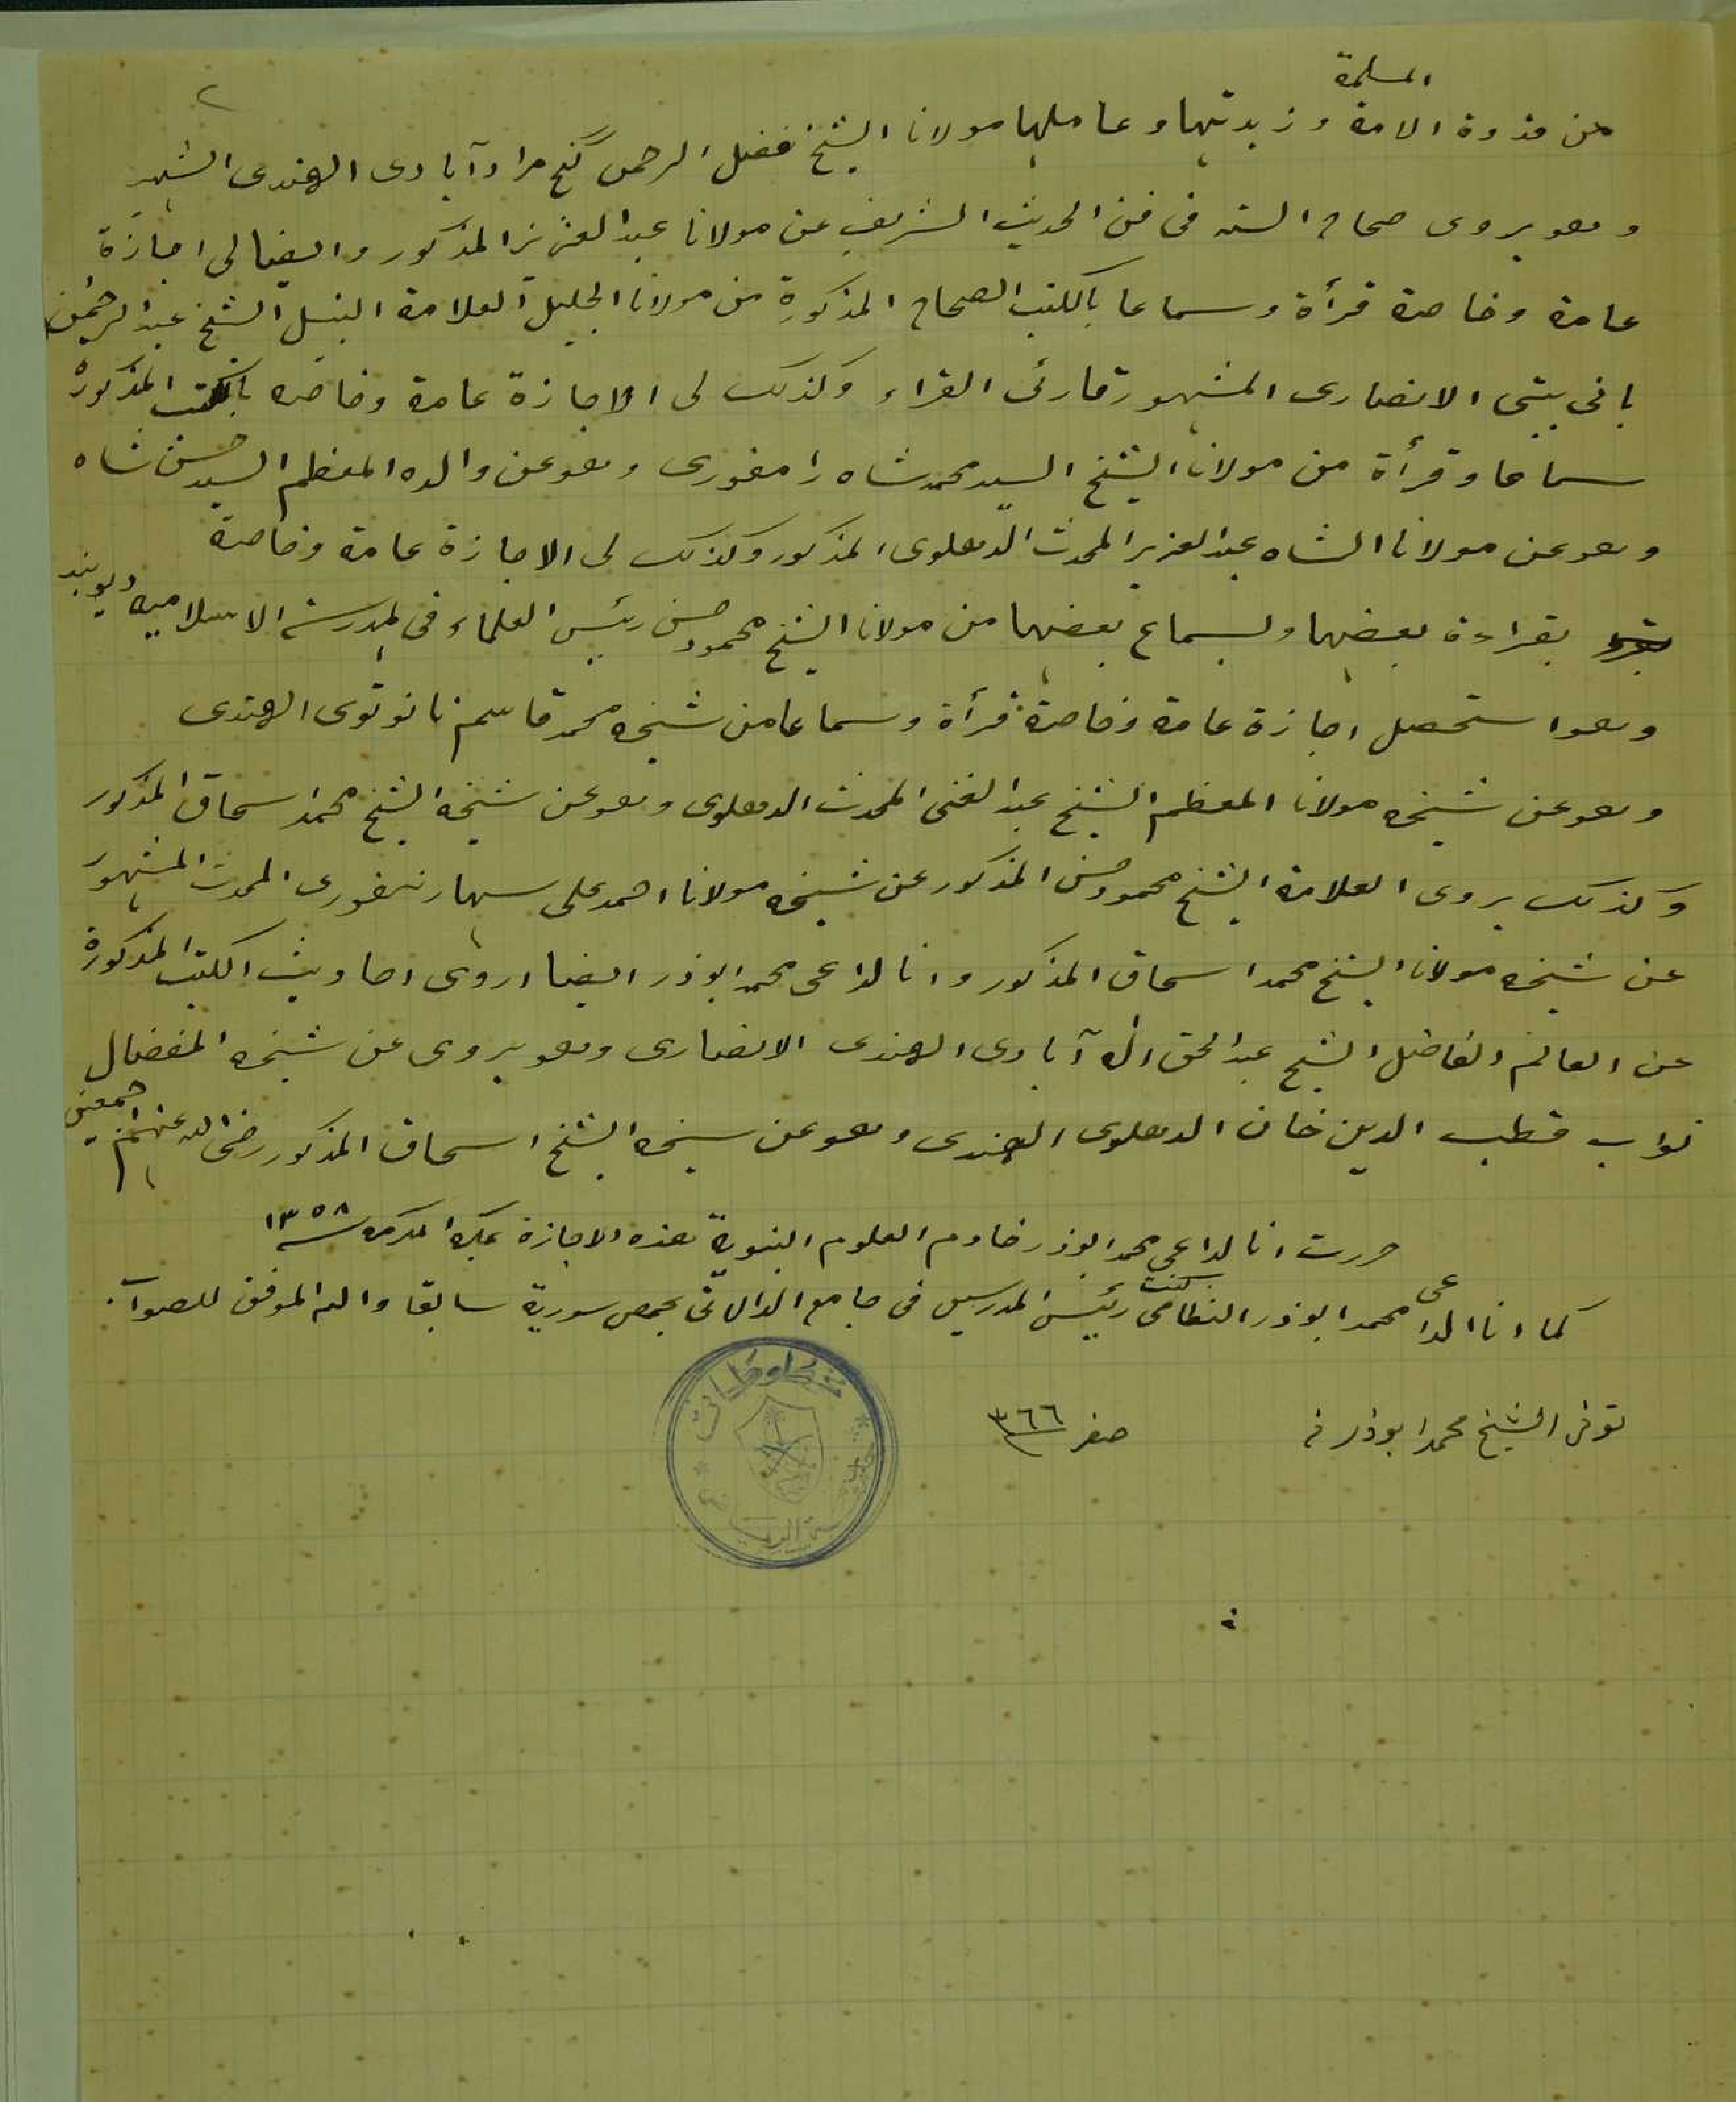 ٢
المسلمة
من قدوة الامة و زبدتها و عاملها مولانا الشيخ فضل الرحمن گنج مرادآبادى الهندى الشهير
و هو يروى صحاح الستة فى فن الحديث الشريف عن مولانا عبد العزيز المذكور و ايضا لى اجازة
عامة و خاصة قرأة و سماعا بالكتب الصحاح المذكورة من مولانا الجليل العلامة النبيل الشيخ عبد الرحمن
پانى پتى الانصارى المشهور قارئ القراء و كذلك لى الاجازة عامة و خاصة بالكتب المذكورة
سماعا و قرأة من مولانا الشيخ السيد محمد شاه رامفورى و هو عن والده المعظم السيد حسن شاه
و هو عن مولانا الشاه عبد العزيز المحدث الدهلوى المذكور و كذلك لى الاجازة عامة و خاصة
بقراءة بعضها و بسماع بعضها من مولانا الشيخ محمود حسن رئيس العلماء فى المدرسة الاسلاميه ديوبند
و هو استحصل اجازة عامة و خاصة قرأة و سماعا من شيخه محمد قاسم نانوتوى الهندى
و هو عن شيخه مولانا المعظم الشيخ عبد الغنى المحدث الدهلوى و هو عن شيخه الشيخ محمد اسحاق المذكور
و كذلك يروى العلامة الشيخ محمود حسن المذكور عن شيخه مولانا احمد على سهارنفورى المحدث المشهور
عن شيخه مولانا الشيخ محمد اسحاق المذكور و انا الداعى محمد ابوذر ايضا اروى احاديث الكتب المذكورة
عن العالم الفاضل الشيخ عبد الحق اله آبادى الهندى الانصارى و هو يروى عن شيخه المفضال
نواب قطب الدين خان الدهلوى الهندى و هو عن شيخه الشيخ اسحاق المذكور رضى الله عنهم اجمعين
حررت انا الداعى محمد ابوذر خادم العلوم النبوية هذه الاجازة بمكة المكرمه سنة ١٣٥٨
كما انا الداعى محمد ابوذر النظامى كنت رئيس المدرسين فى جامع الدالاتى بحمص سورية سابقا و الله الموفق للصواب
توفى الشيخ محمد ابوذر فى صفر ٣٦٦